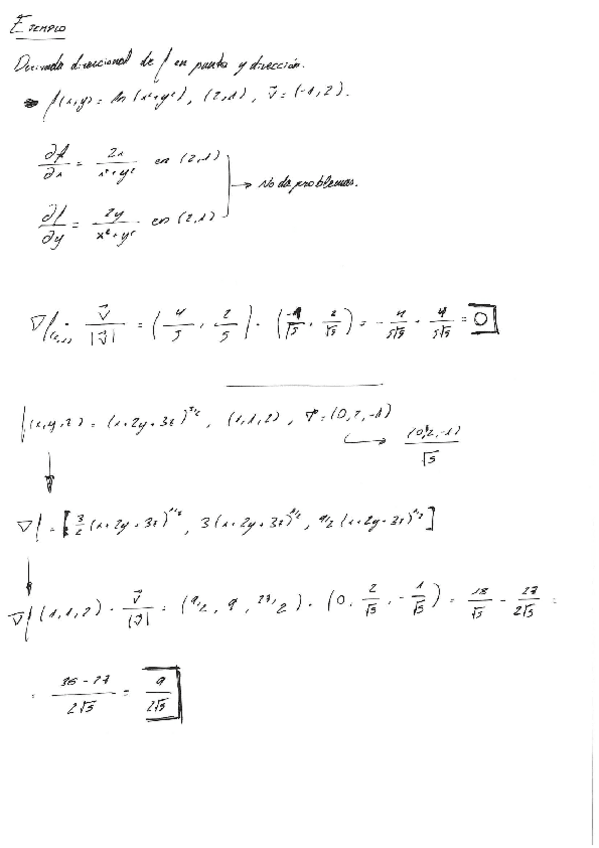 EJEMPLO
Derivada direccional de f en punto y dirección.
f(x,y) = ln(x²+y²), (2,1), v⃗ = (-1,2).
∂f/∂x = 2x/(x²+y²) en (2,1)
→ No da problemas.
∂f/∂y = 2y/(x²+y²) en (2,1)
∇f(2,1) · v⃗/|v⃗| = (4/5, 2/5) · (-1/√5, 2/√5) = -4/5√5 + 4/5√5 = 0
f(x,y,z) = (x+2y+3z)^3/2, (1,1,2), v⃗ = (0,2,-1)
→ (0,2,-1)/√5
∇f = [3/2 (x+2y+3z)^1/2, 3(x+2y+3z)^1/2, 9/2 (x+2y+3z)^1/2]
∇f(1,1,2) · v⃗/|v⃗| = (9/2, 9, 27/2) · (0, 2/√5, -1/√5) = 18/√5 - 27/2√5 =
= 36-27/2√5 = 9/2√5